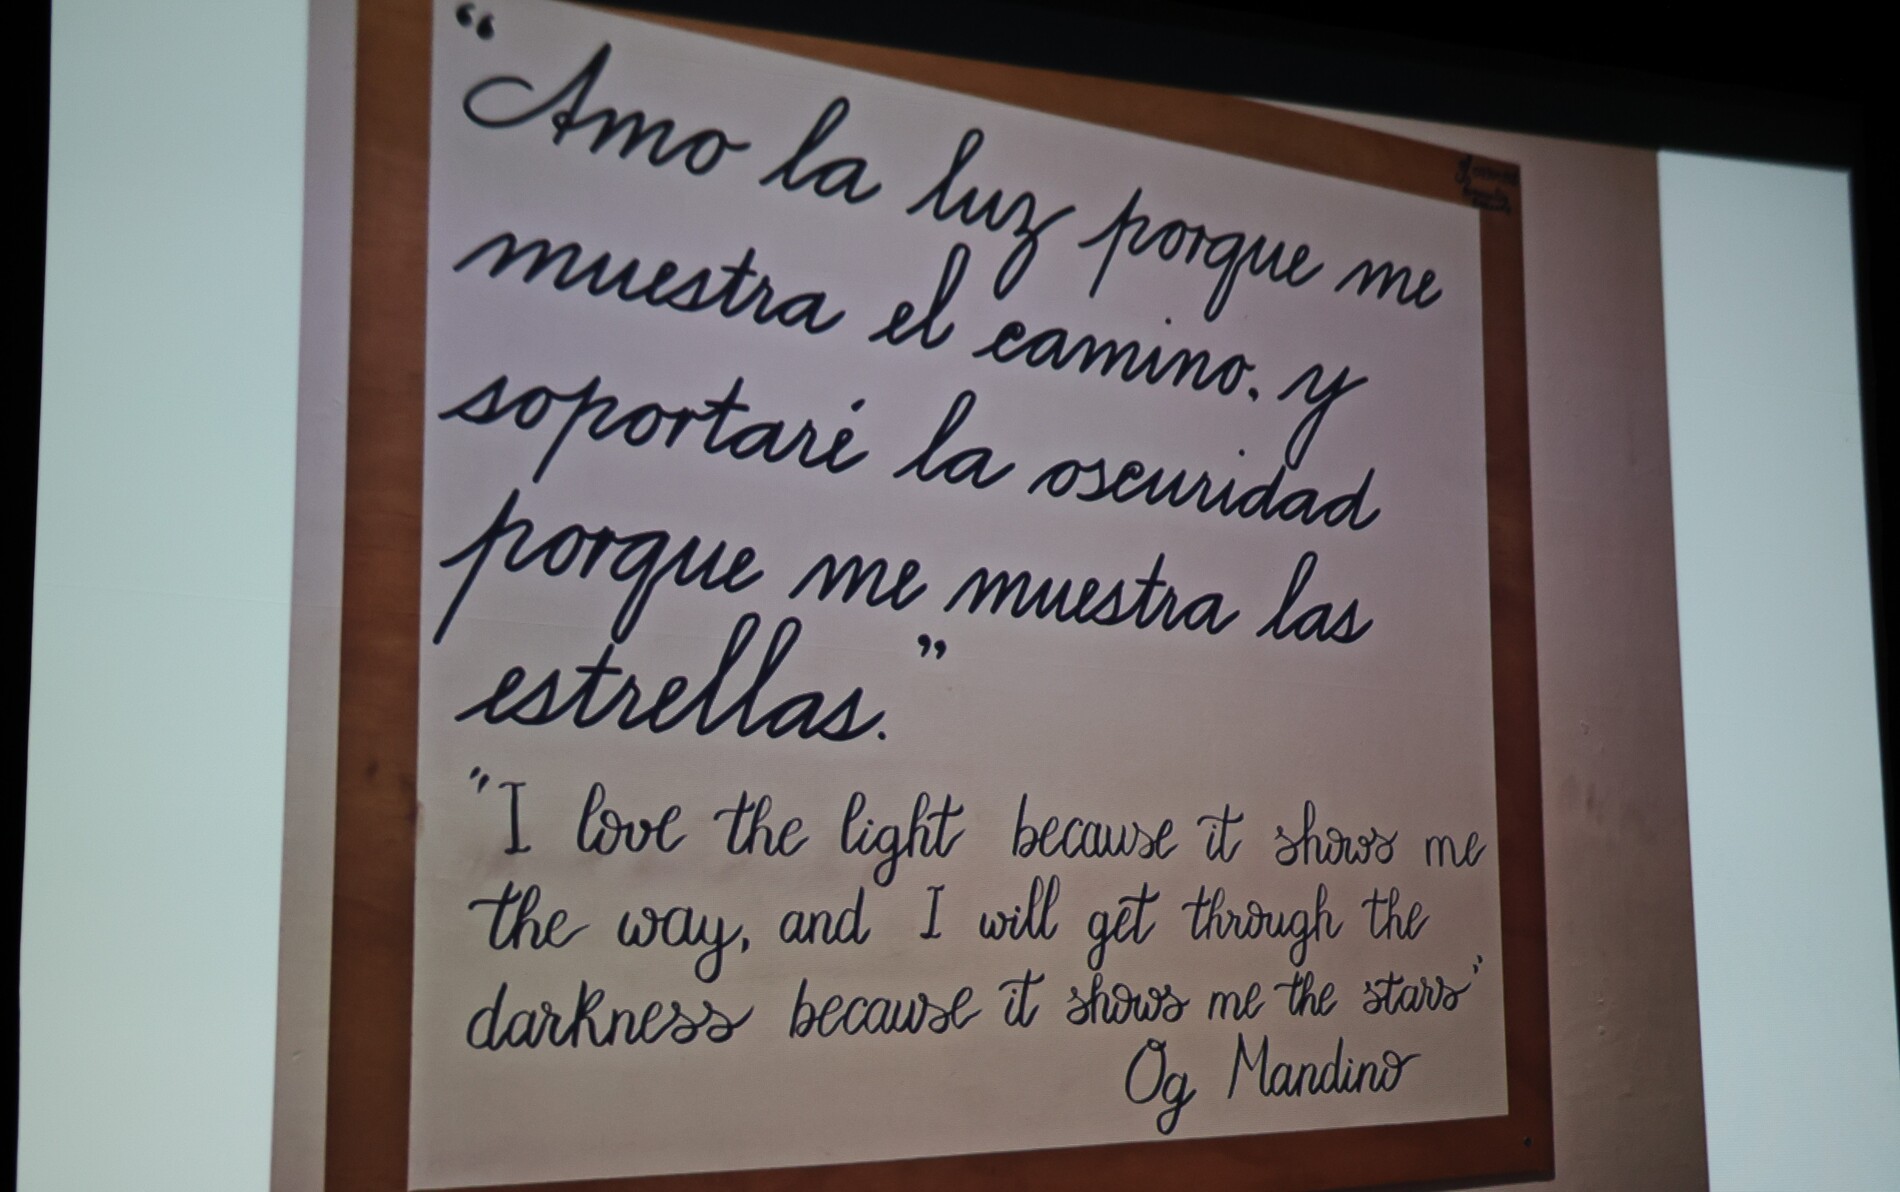 “Amo la luz porque me
muestra el camino, y
soportaré la oscuridad
porque me muestra las
estrellas.”
"I love the light because it shows me
the way, and I will get through the
darkness because it shows me the stars"
Og Mandino